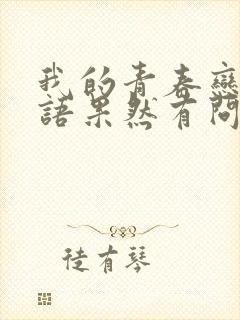 我的青春戀
語果然有問
徒有琴